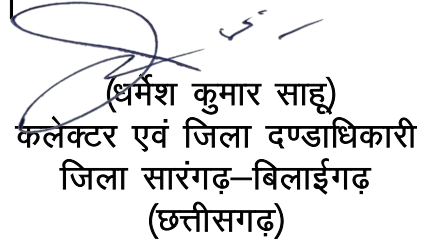 (धर्मेश कुमार साहू)
कलेक्टर एवं जिला दण्डाधिकारी
जिला सारंगढ़–बिलाईगढ़
(छत्तीसगढ़)